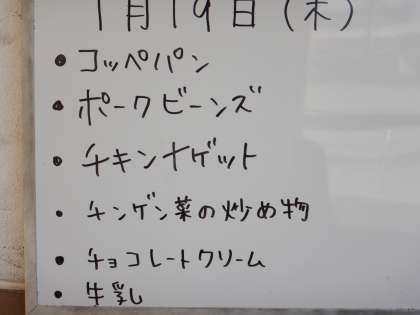 1月19日(木)
• コッペパン
• ポークビーンズ
• チキンナゲット
• チンゲン菜の炒め物
• チョコレートクリーム
• 牛乳